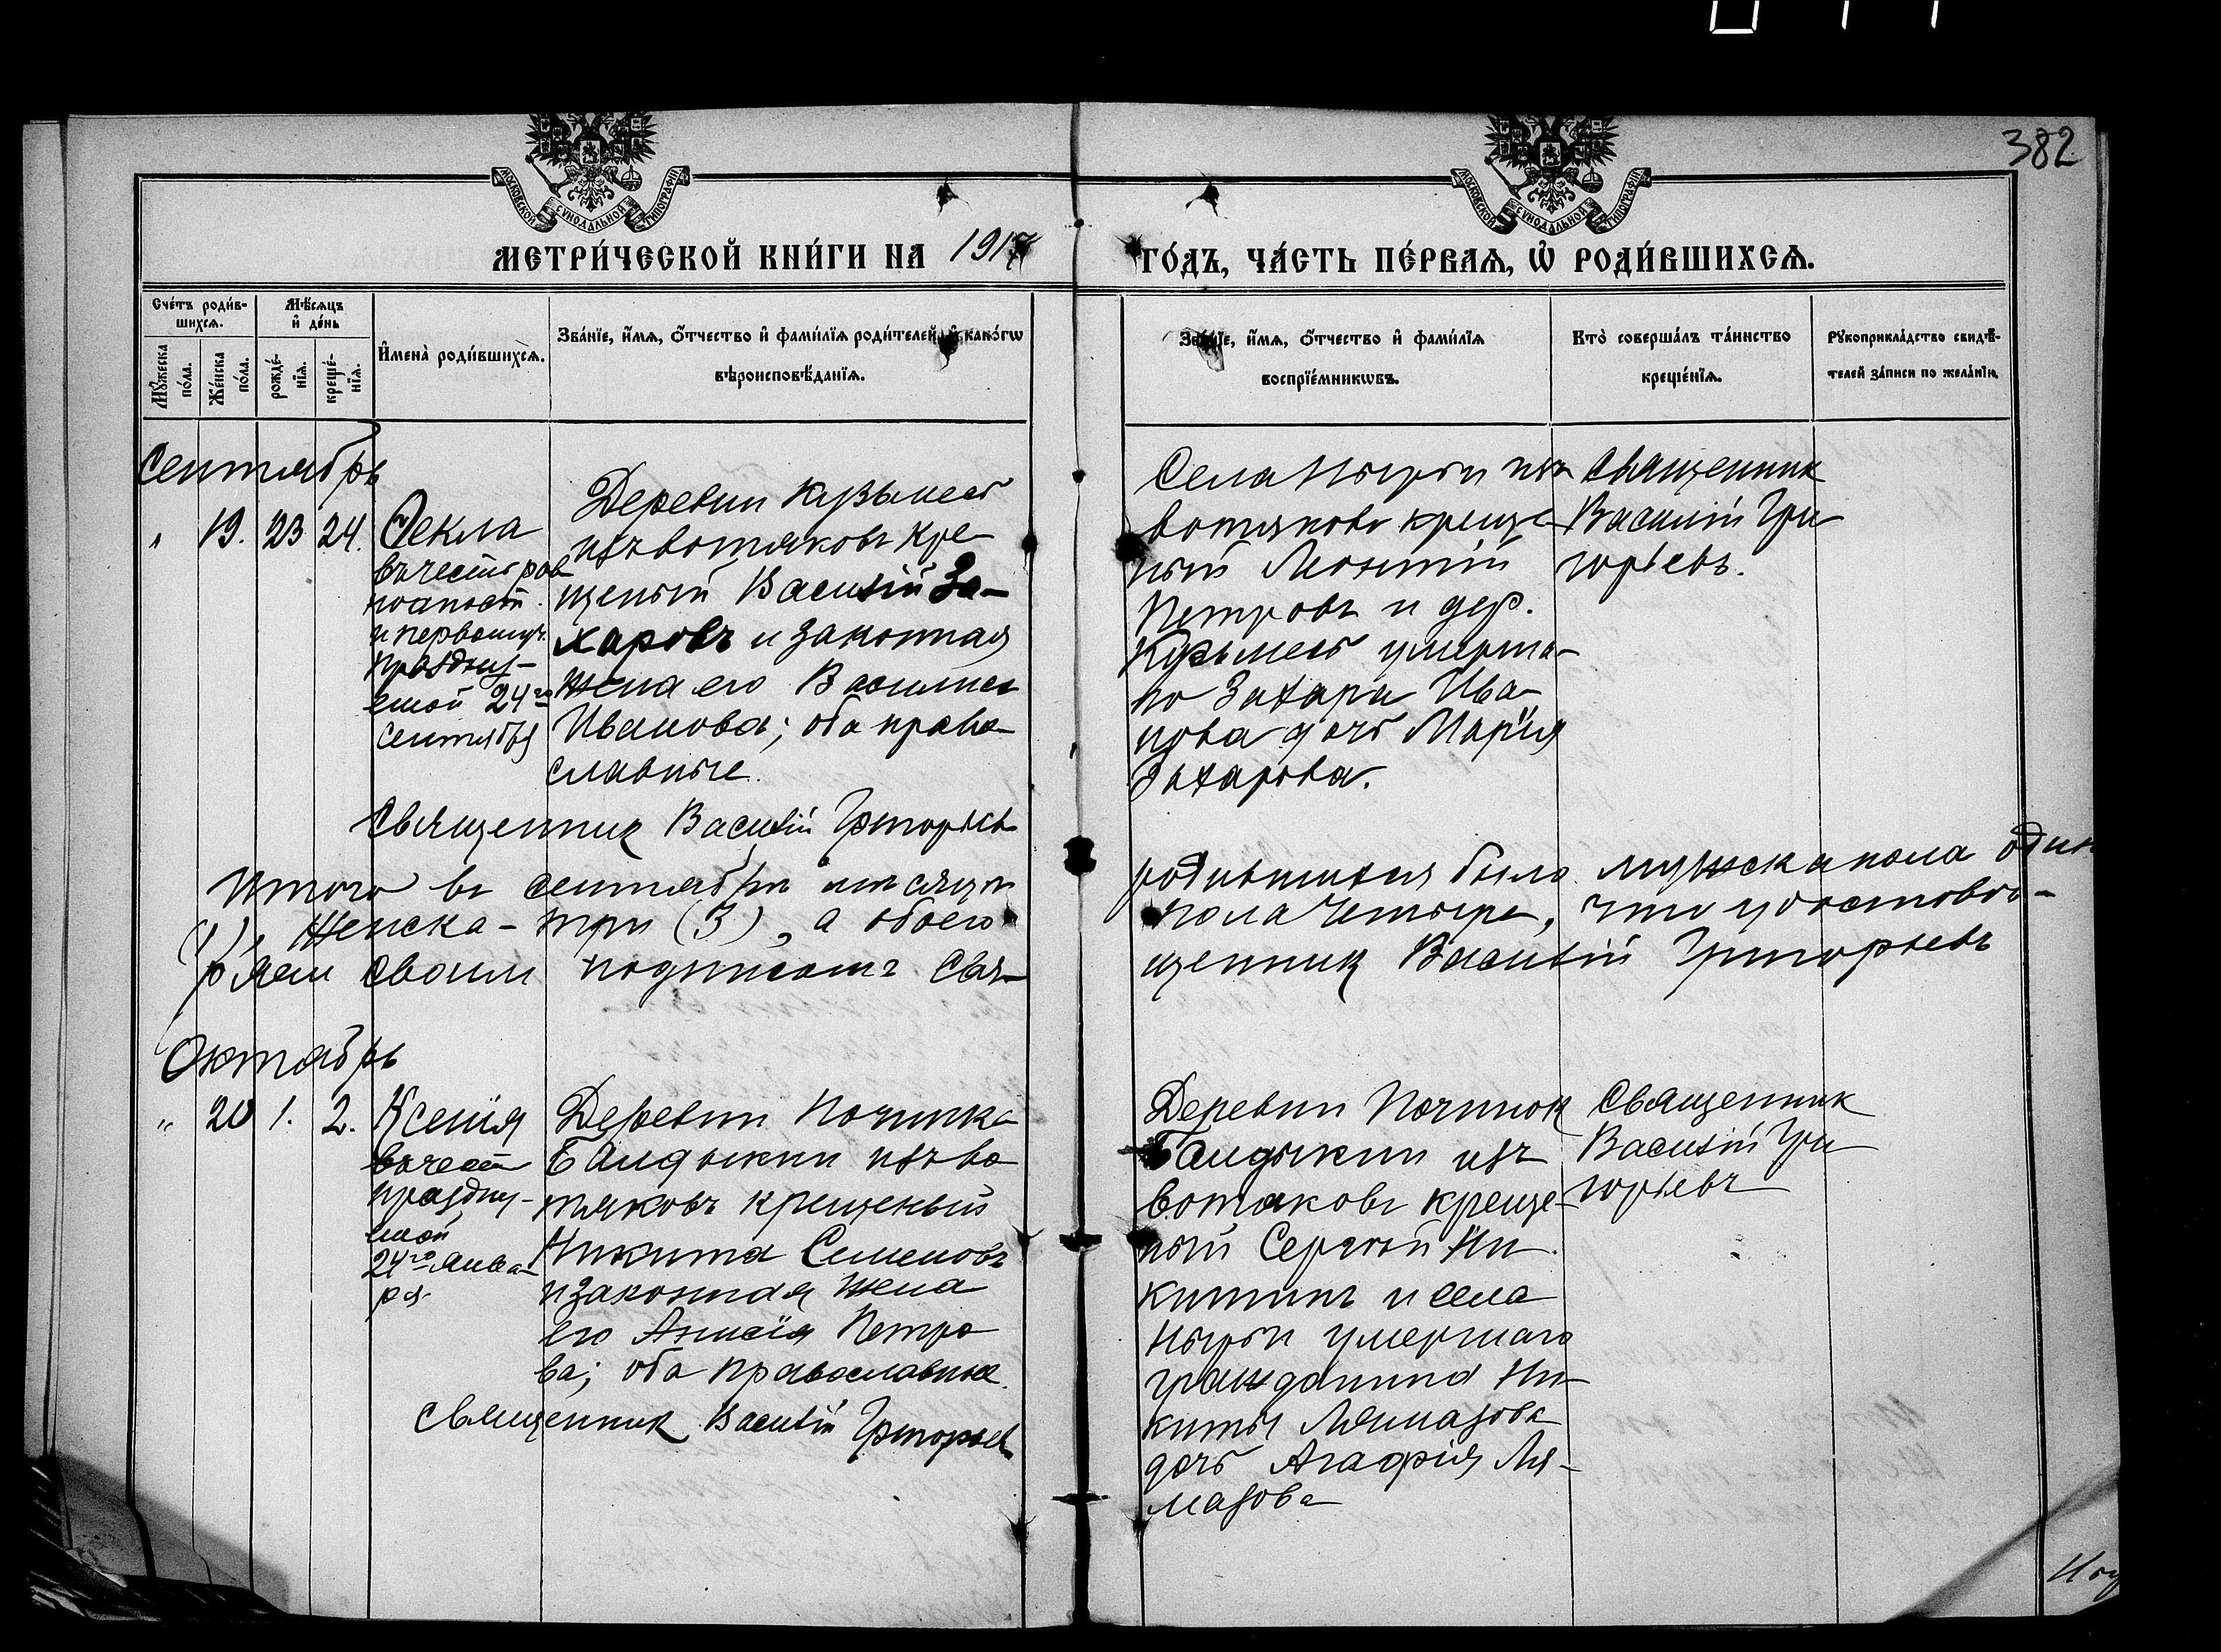 382
МОСКОВСКОЙ СѴНОДАЛЬНОЙ ТИПОГРАФІИ
МОСКОВСКОЙ СѴНОДАЛЬНОЙ ТИПОГРАФІИ
МЕТРИ́ЧЕСКОЙ КНИ́ГИ НА 1917 ГО́ДЪ, ЧА́СТЬ ПЕ́РВАѦ, Ѡ҆ РОДИ́ВШИХСѦ.
Сче́тъ роди́в-
шихсѧ.
Мꙋ́жеска
по́ла.
Же́нска
по́ла.
Мѣ́сѧцъ
и҆ де́нь
рожде́-
нїѧ.
креще́-
нїѧ.
И҆мена̀ роди́вшихсѧ.
Зва́нїе, и҆́мѧ, ѻ҆́тчество и҆ фами́лїѧ роди́телей, и҆ како́гѡ
вѣроисповѣ́данїѧ.
Зва́нїе, и҆́мѧ, ѻ҆́тчество и҆ фами́лїѧ
воспрїе́мникѡвъ.
Кто̀ соверша́лъ та́инство
креще́нїѧ.
Рꙋкоприкла́дство свидѣ́-
телей за́писи по жела́нїю.
Сентябрь
" 19. 23 24.
Ѳекла
въ честь рав
ноапост.
и первомуч.
празднуе-
мой 24го
Сентября
Деревни Кузьмесь
изъ вотяковъ кре-
щеный Василій За-
харовъ и законная
жена его Василиса
Иванова; оба право-
славные.
Священник Василій Григорьев
Села Нырьи изъ
вотяковъ креще-
ный Леонтій
Петровъ и дер.
Кузьмесь умерша-
го Захара Ива-
нова дочь Марія
Захарова.
Священник
Василій Гри-
горьевъ.
Итого въ сентябрѣ мѣсяцѣ родившихся было мужска пола один
(1), женска - три (3), а обоего пола четыре, что удостове-
ряем своим подписомъ Свя-щенник Василій Григорьевъ
Октябрь
" 20 1. 2.
Ксенія
въ честь
праздну-
емой
24го Янва-
ря.
Деревни Починка
Бандыкии изъ во
тяковъ крещеный
Никита Семеновъ
и законная жена
его Анисія Петро
ва; оба православные.
Священник Василій Григорьев
Деревни Починок
Бандыкии изъ
вотяковъ креще-
ный Сергѣй Ни-
китинъ и села
Нырьи умершаго
гражданина Ни-
киты Лямазова
дочь Агафія Ля-
мазова
Священник
Василій Гри-
горьевъ